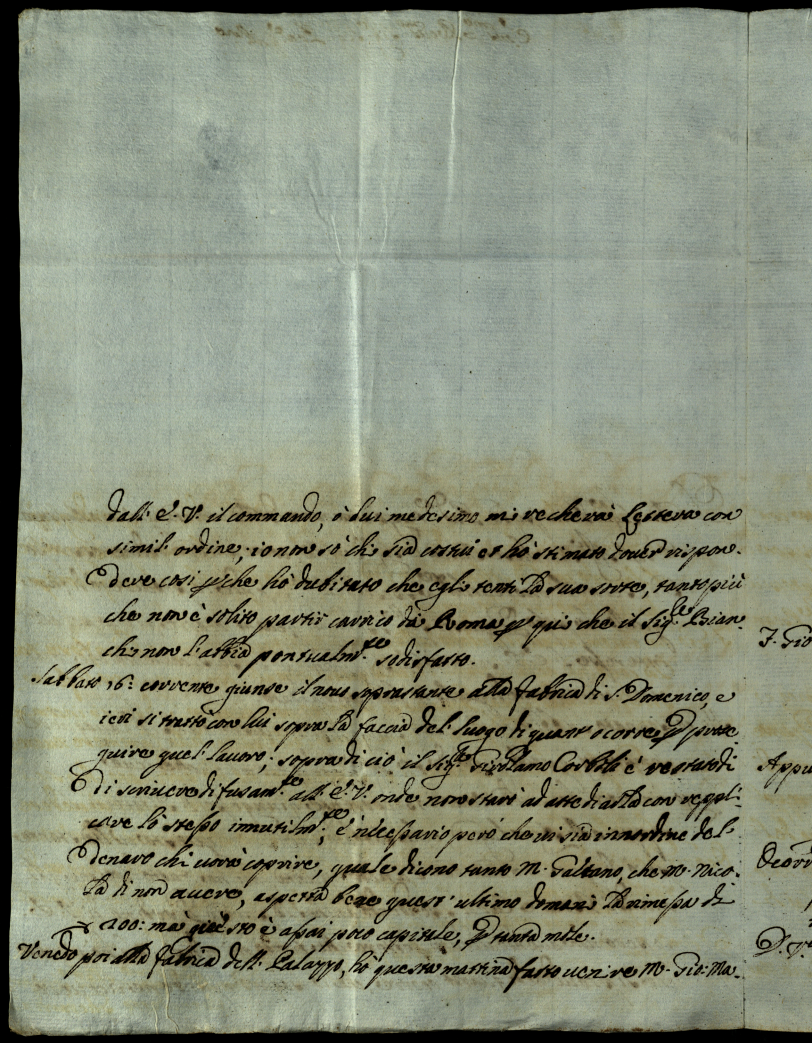 dall' E. V. il commando, ò lui medesimo mi recherà Lettera con
simil' ordine; io non sò chi sia costui et hò stimato dover rispon-
dere così p che hò dubitato che egli tenti la sua sorte, tanto più
che non è solito partir carrico da Roma p qui che il Sig.re Bian-
chi non l'abbia pontualm.te sodisfatto.
Sabbato 16: corrente giunse il novo soprastante alla fabrica di S. Domenico, e
ieri si trattò con lui sopra la faccia del luogo di quant' ocorre p prose-
guire quel lavoro; sopra di ciò il Sig.re Girolamo è restato di
di scrivere difusam.te all' E. V. onde non starò ad attediarla con repli-
care lo stesso inutilm.te; è necessario però che vi sia in ordine del
denaro chi vorà coprire, quale dicono tanto M. Gaetano, che M. Nico-
la di non avere, aspetta bene quest' ultimo domani la rimessa di
200: mà questo è assai poco capitale, p tanta mole.
Venendo poi alla fabrica dell Palazzo, hò questa mattina fatto venire M. Gio: Ma-
F. Gio
Appu
Ocorr